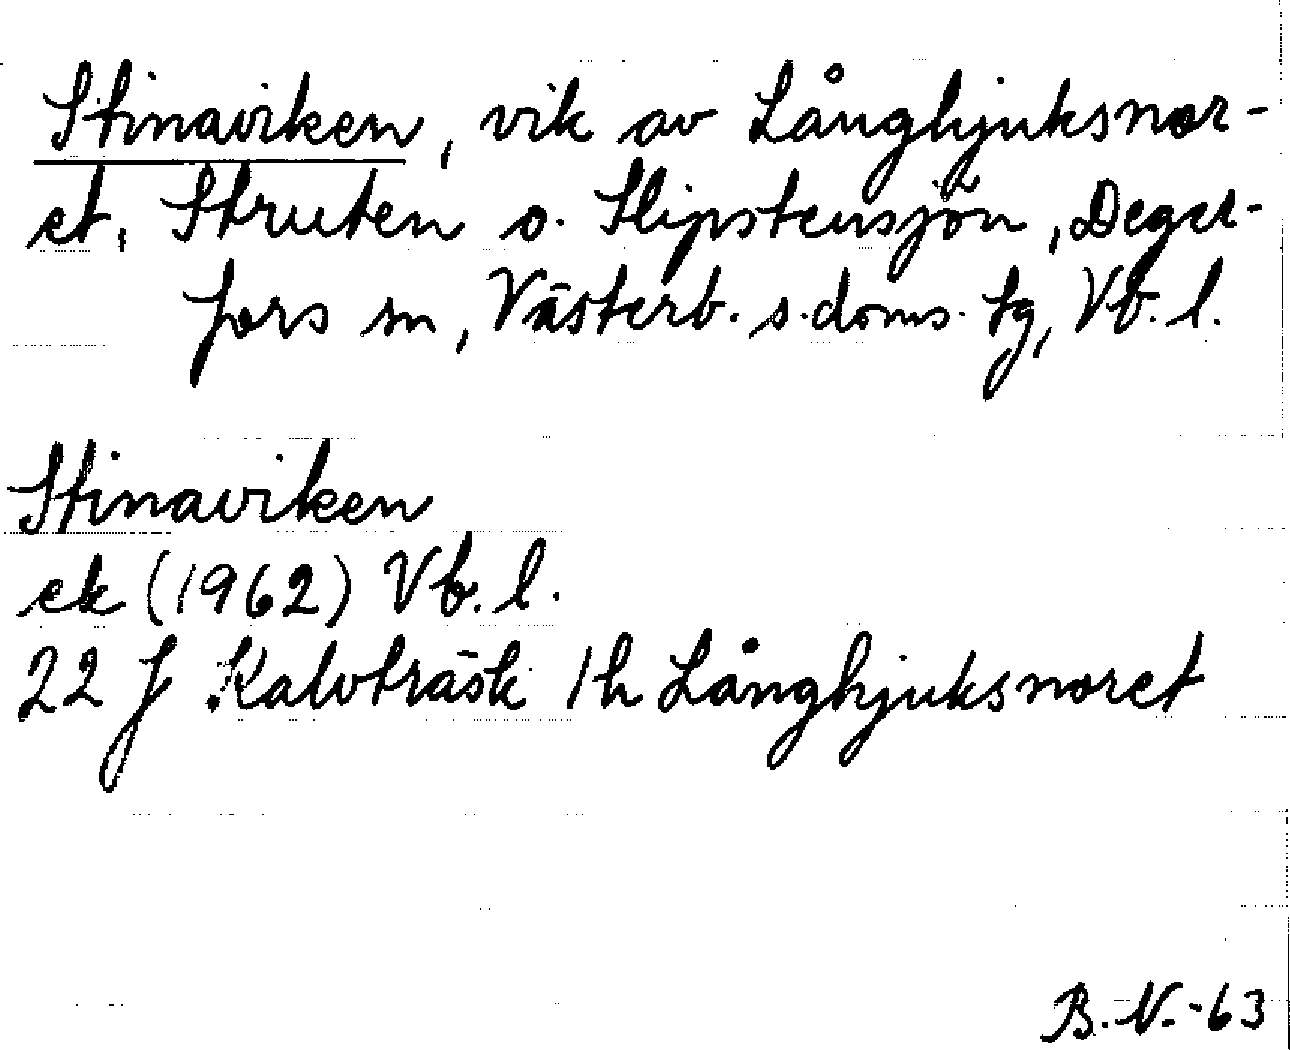 Stinaviken, vik av Långhjuksnor-
et, Struten o. Slipstensjön, Deger-
fors sn, Västerb. s. doms. tg, Vb. l.
Stinaviken
ek (1962) Vb. l.
22 J Kalvträsk 1h Långhjuksnoret
B. N. -63